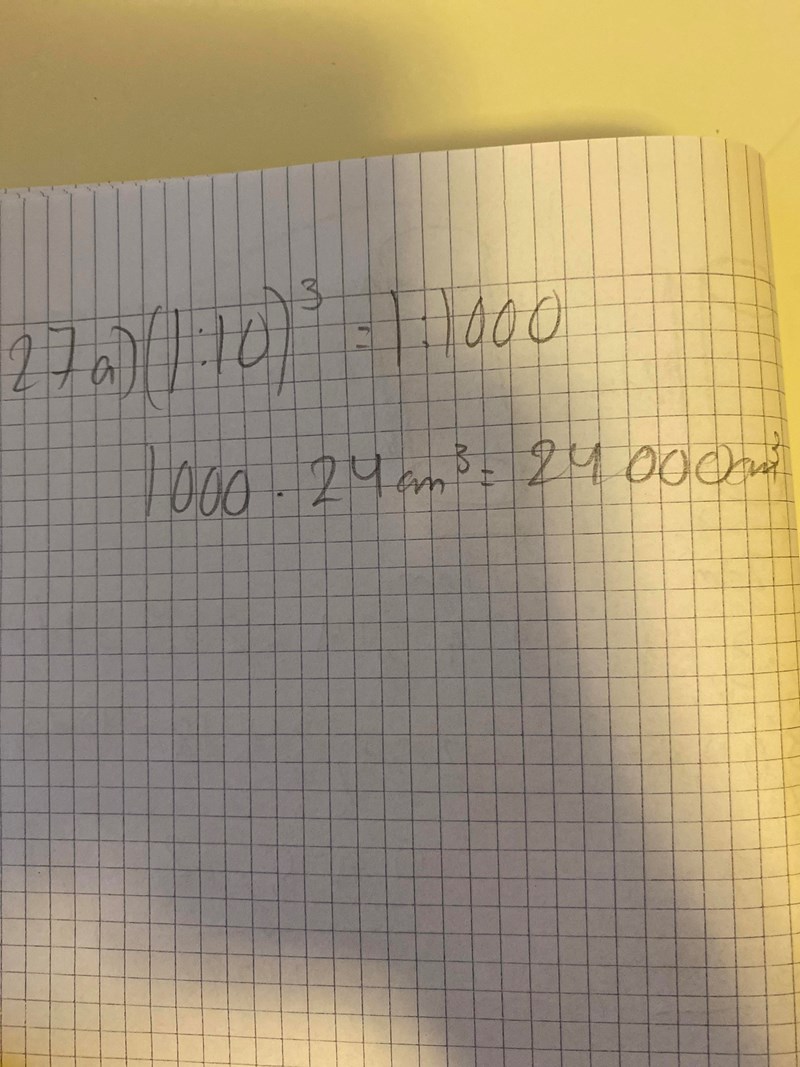 27 a) (1:10)³ = 1:1000
1000 · 24 cm³ = 24 000 cm³